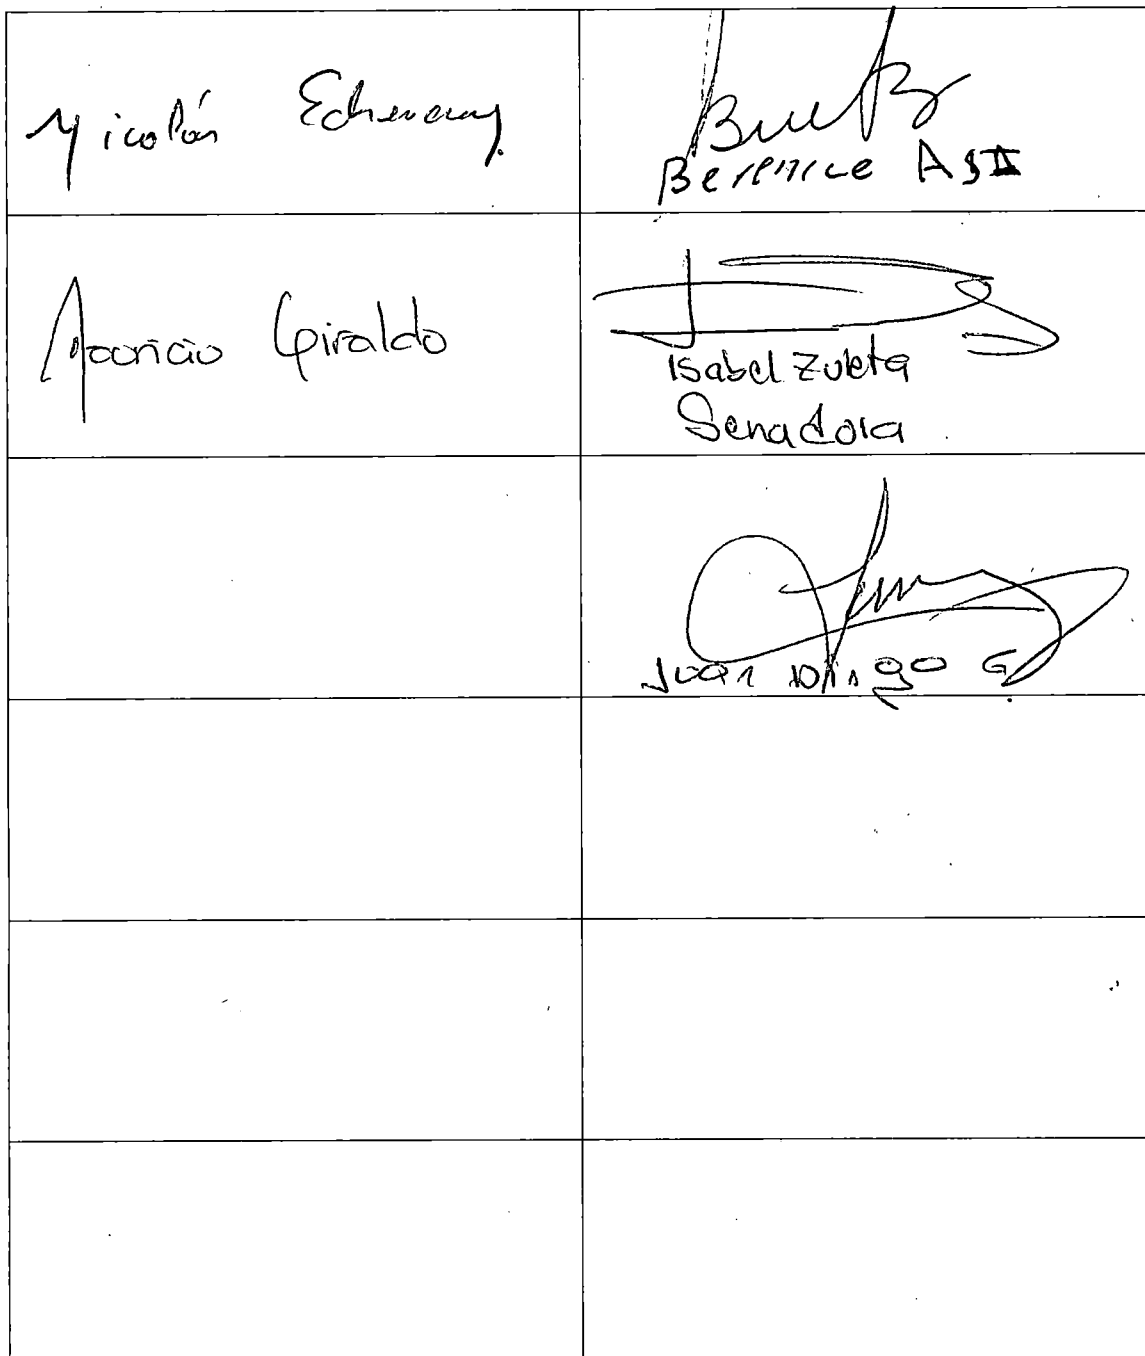 Nicolás Echeverry
Berenice
Mauricio Giraldo
Isabel Zuleta
Senadora
Juan Diego G